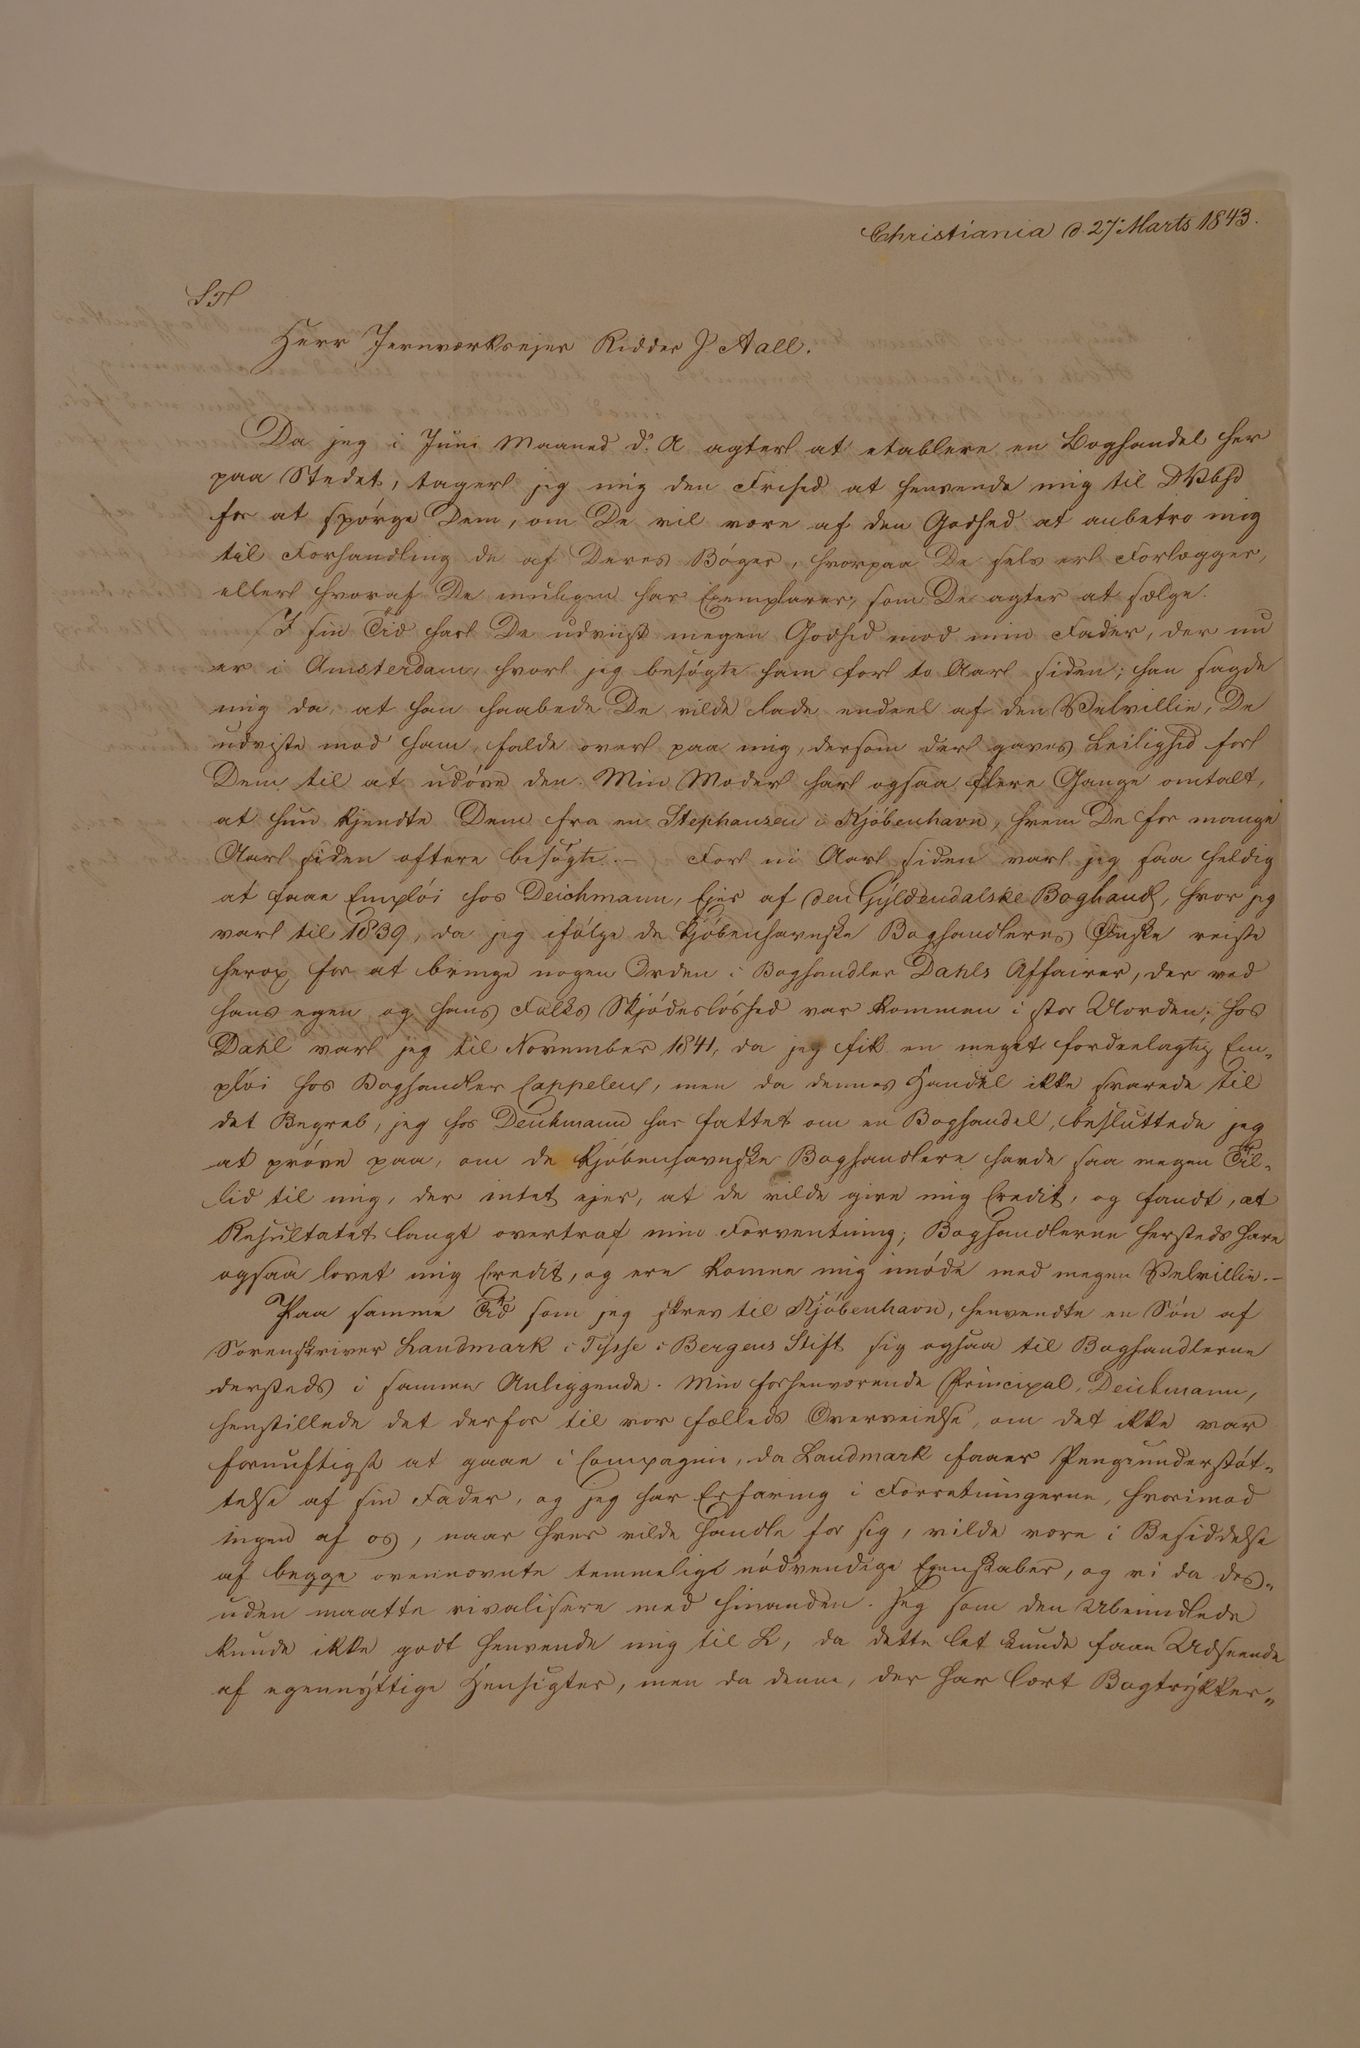 Christiania d. 27 Marts 1843.
S.T.
Herr Jernværksejer Ridder J. Aall.
Da jeg i Juni Maaned d. A agter at etablere en Boghandel her
paa Stedet, tager jeg mig den Frihed at henvende mig til DVbhd
for at spørge Dem, om De vil være af den Godhed at anbetro mig
til Forhandling de af Deres Bøger, hvorpaa De selv er Forlægger,
eller hvoraf De muligen har Exemplarer, som De agter at sælge.
I sin Tid har De udviist megen Godhed mod min Fader, der nu
er i Amsterdam, hvor jeg besøgte ham for to Aar siden; han sagde
mig da, at han haabede De vilde lade endeel af den Velvillie, De
udviste mod ham, falde over paa mig, dersom der gaves Leilighed for
Dem til at udøve den. Min Moder har ogsaa flere Gange omtalt,
at hun kjendte Dem fra en Stephansen i Kjøbenhavn, hvem De for mange
Aar siden oftere besøgte. – For ni Aar siden var jeg saa heldig
at faae Emploi hos Deichmann, Ejer af den Gyldendalske Boghand, hvor jeg
var til 1839, da jeg ifølge de kjøbenhavnske Boghandleres Ønske reiste
herop for at bringe nogen Orden i Boghandler Dahls Affairer, der ved
hans egen og hans Folks Skjødesløshed var kommen i stor Uorden; hos
Dahl var jeg til November 1841, da jeg fik en meget fordeelagtig Em-
ploi hos Boghandler Cappelen, men da dennes Handel ikke svarede til
det Begreb, jeg hos Deichmann har fattet om en Boghandel, besluttede jeg
at prøve paa, om de kjøbenhavnske Boghandlere havde saa megen Til-
lid til mig, der intet ejer, at de vilde give mig Credit, og fandt, at
Resultatet langt overtraf min Forventning; Boghandlerne hersteds have
ogsaa lovet mig Credit, og ere komne mig imøde med megen Velvillie. –
Paa samme Tid som jeg skrev til Kjøbenhavn, henvendte en Søn af
Sorenskriver Landmark i Tysse i Bergens Stift sig ogsaa til Boghandlerne
dersteds i samme Anliggende. Min forhenværende Principal, Deichmann,
henstillede det derfor til vor fælleds Overveielse, om det ikke var
fornuftigst at gaae i Compagni, da Landmark faaer Pengeunderstøt-
telse af sin Fader, og jeg har Erfaring i Forretningerne, hvorimod
ingen af os, naar hver vilde handle for sig, vilde være i Besiddelse
af begge ovennævnte temmelig nødvendige Egenskaber, og vi da des-
uden maatte rivalisere med hinanden. Jeg som den Ubemidlede
kunde ikke godt henvende mig til L, da dette let kunde faae Udseende
af egennyttige Hensigter, men da denne, der har lært Bogtrykker-